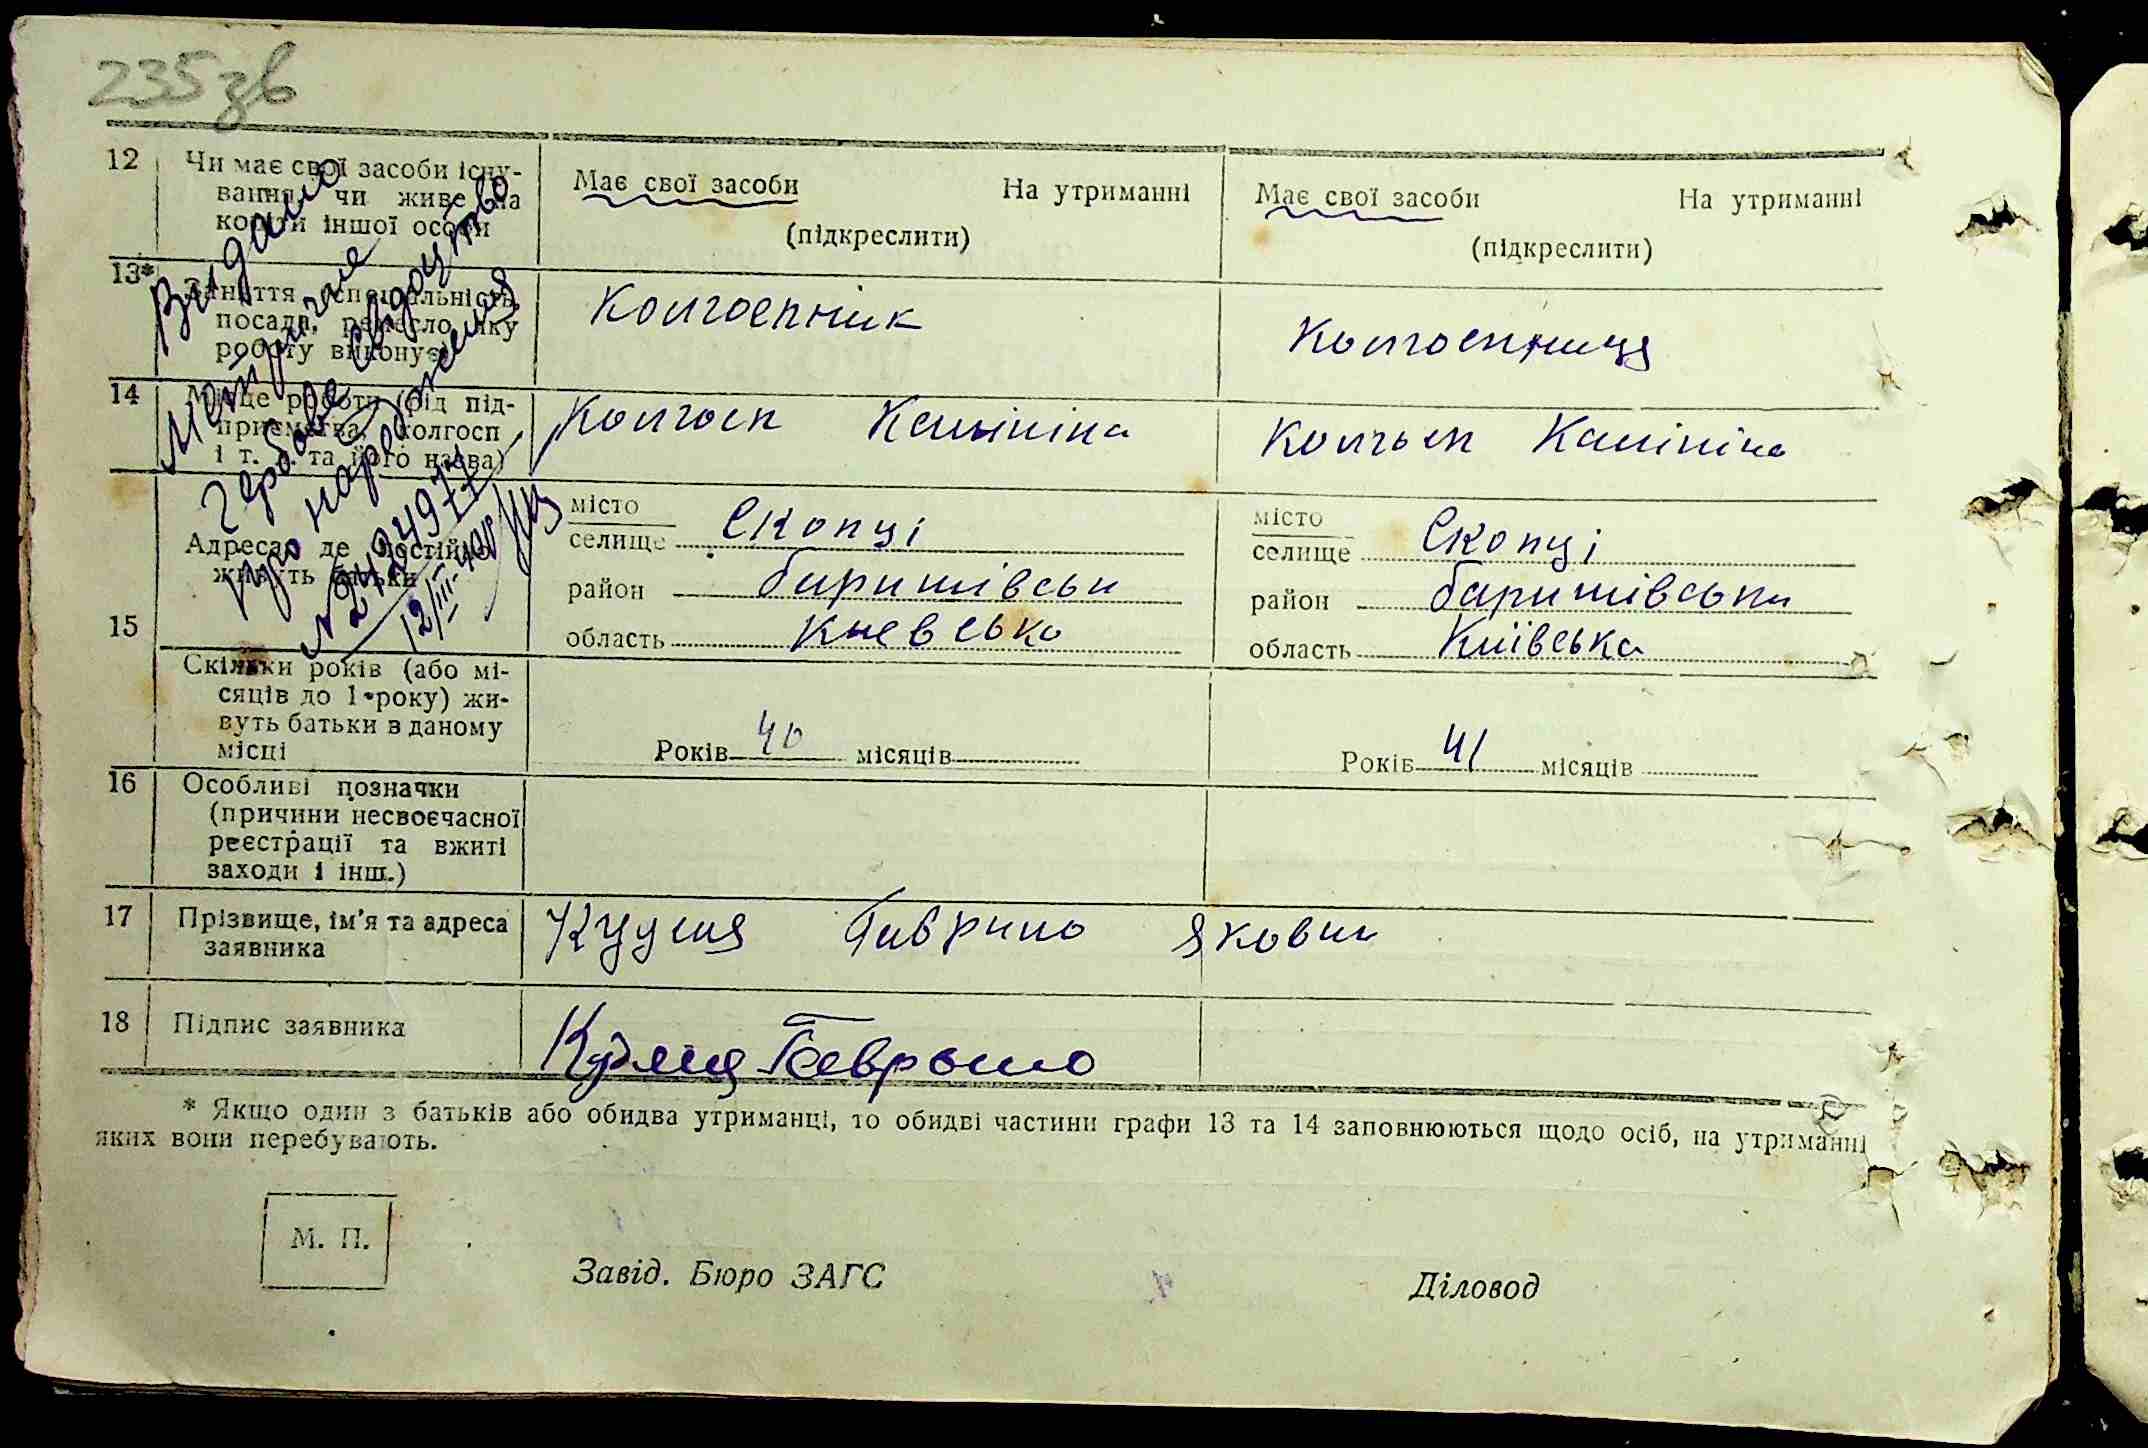 235зв
12 Чи має свої засоби існу-
вання, чи живе на
кошти іншої особи
Має свої засоби На утриманні
(підкреслити)
Має свої засоби На утриманні
(підкреслити)
13* Заняття, спеціальність,
посада, ремесло, яку
роботу виконує
Колгоспник
Колгоспниця
14 Місце роботи (від під-
приємства, колгосп
і т. д. та його назва)
Колгосп Калініна
Колгосп Калініна
Видано
Метричне
гербове свідоцтво
про народження
15
Адреса, де постійно
живуть батьки
місто
селище Скопці
район баришівськи
область Киевська
місто
селище Скопці
район баришівськи
область Київська
Скільки років (або мі-
сяців до 1 року) жи-
вуть батьки в даному
місці
Років 40 місяців
Років 41 місяців
16 Особливі позначки
(причини несвоєчасної
реєстрації та вжиті
заходи і інш.)
17 Прізвище, ім'я та адреса
заявника
Гаврило Якович
18 Підпис заявника
* Якщо один з батьків або обидва утриманці, то обидві частини графи 13 та 14 заповнюються щодо осіб, на утриманні
яких вони перебувають.
М. П.
Завід. Бюро ЗАГС Діловод